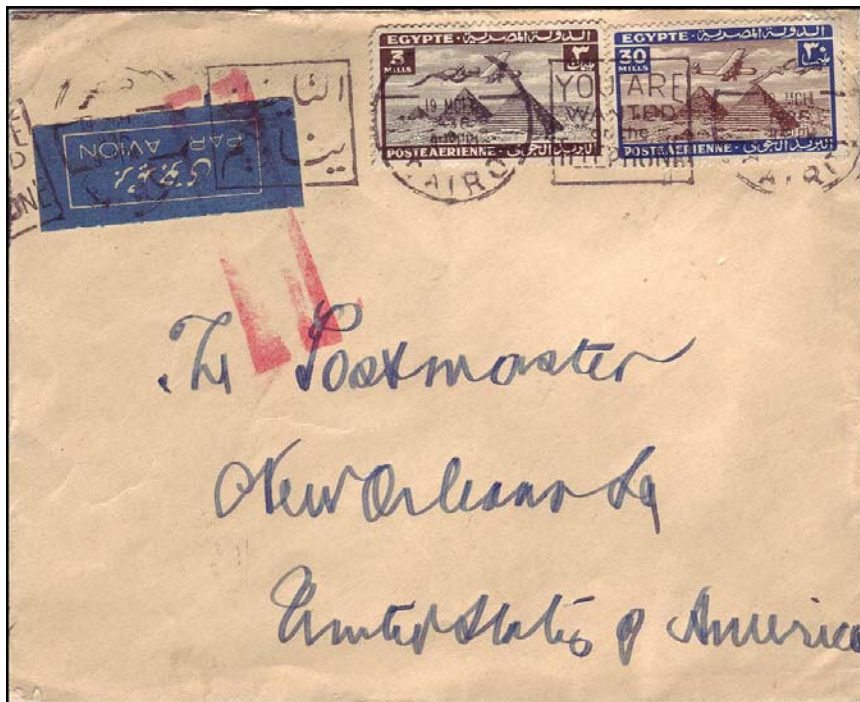 EGYPTE - الدولة المصرية
3 MILLS
٣
POSTE AERIENNE - البريد الجوى
EGYPTE - الدولة المصرية
30 MILLS
٣٠
POSTE AERIENNE - البريد الجوى
19 MCH
CAIRO
YOU ARE
WANTED
ON THE
TELEPHONE
PAR AVION
The Postmaster
New Orleans La
United States of America